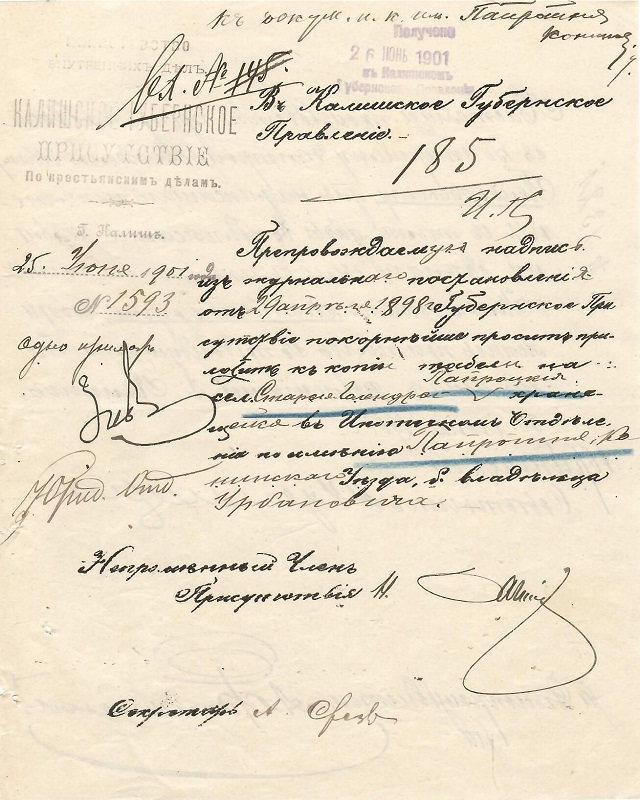 къ докум. и. к. им. Папротня
Получено
26 ІЮНЬ 1901
въ Калишскомъ
Губернскомъ Правленіи
Вх. № 148.
Въ Калишское Губернское
Правленіе.
КАЛИШСКОЕ ГУБЕРНСКОЕ
ПРИСУТСТВІЕ
По крестьянскимъ дѣламъ.
185
Г. Калишъ.
25 Іюня 1901 года
№ 1593
Препровождаемую надпись
изъ журнальнаго постановленія
отъ 29 апрѣля 1898 г. Губернское При
сутствіе покорнѣйше проситъ при
ложить къ копіи табели на
сел. Старые Голендры Папроцкія хране
щейся въ Ипотечномъ Отдѣле
ніи по имѣнію Папротня, Ко
нинскаго Уѣзда, б. владѣльца
Урбановича.
Юрид. Отд.
Непремѣнный Членъ
Присутствія
Секретарь А